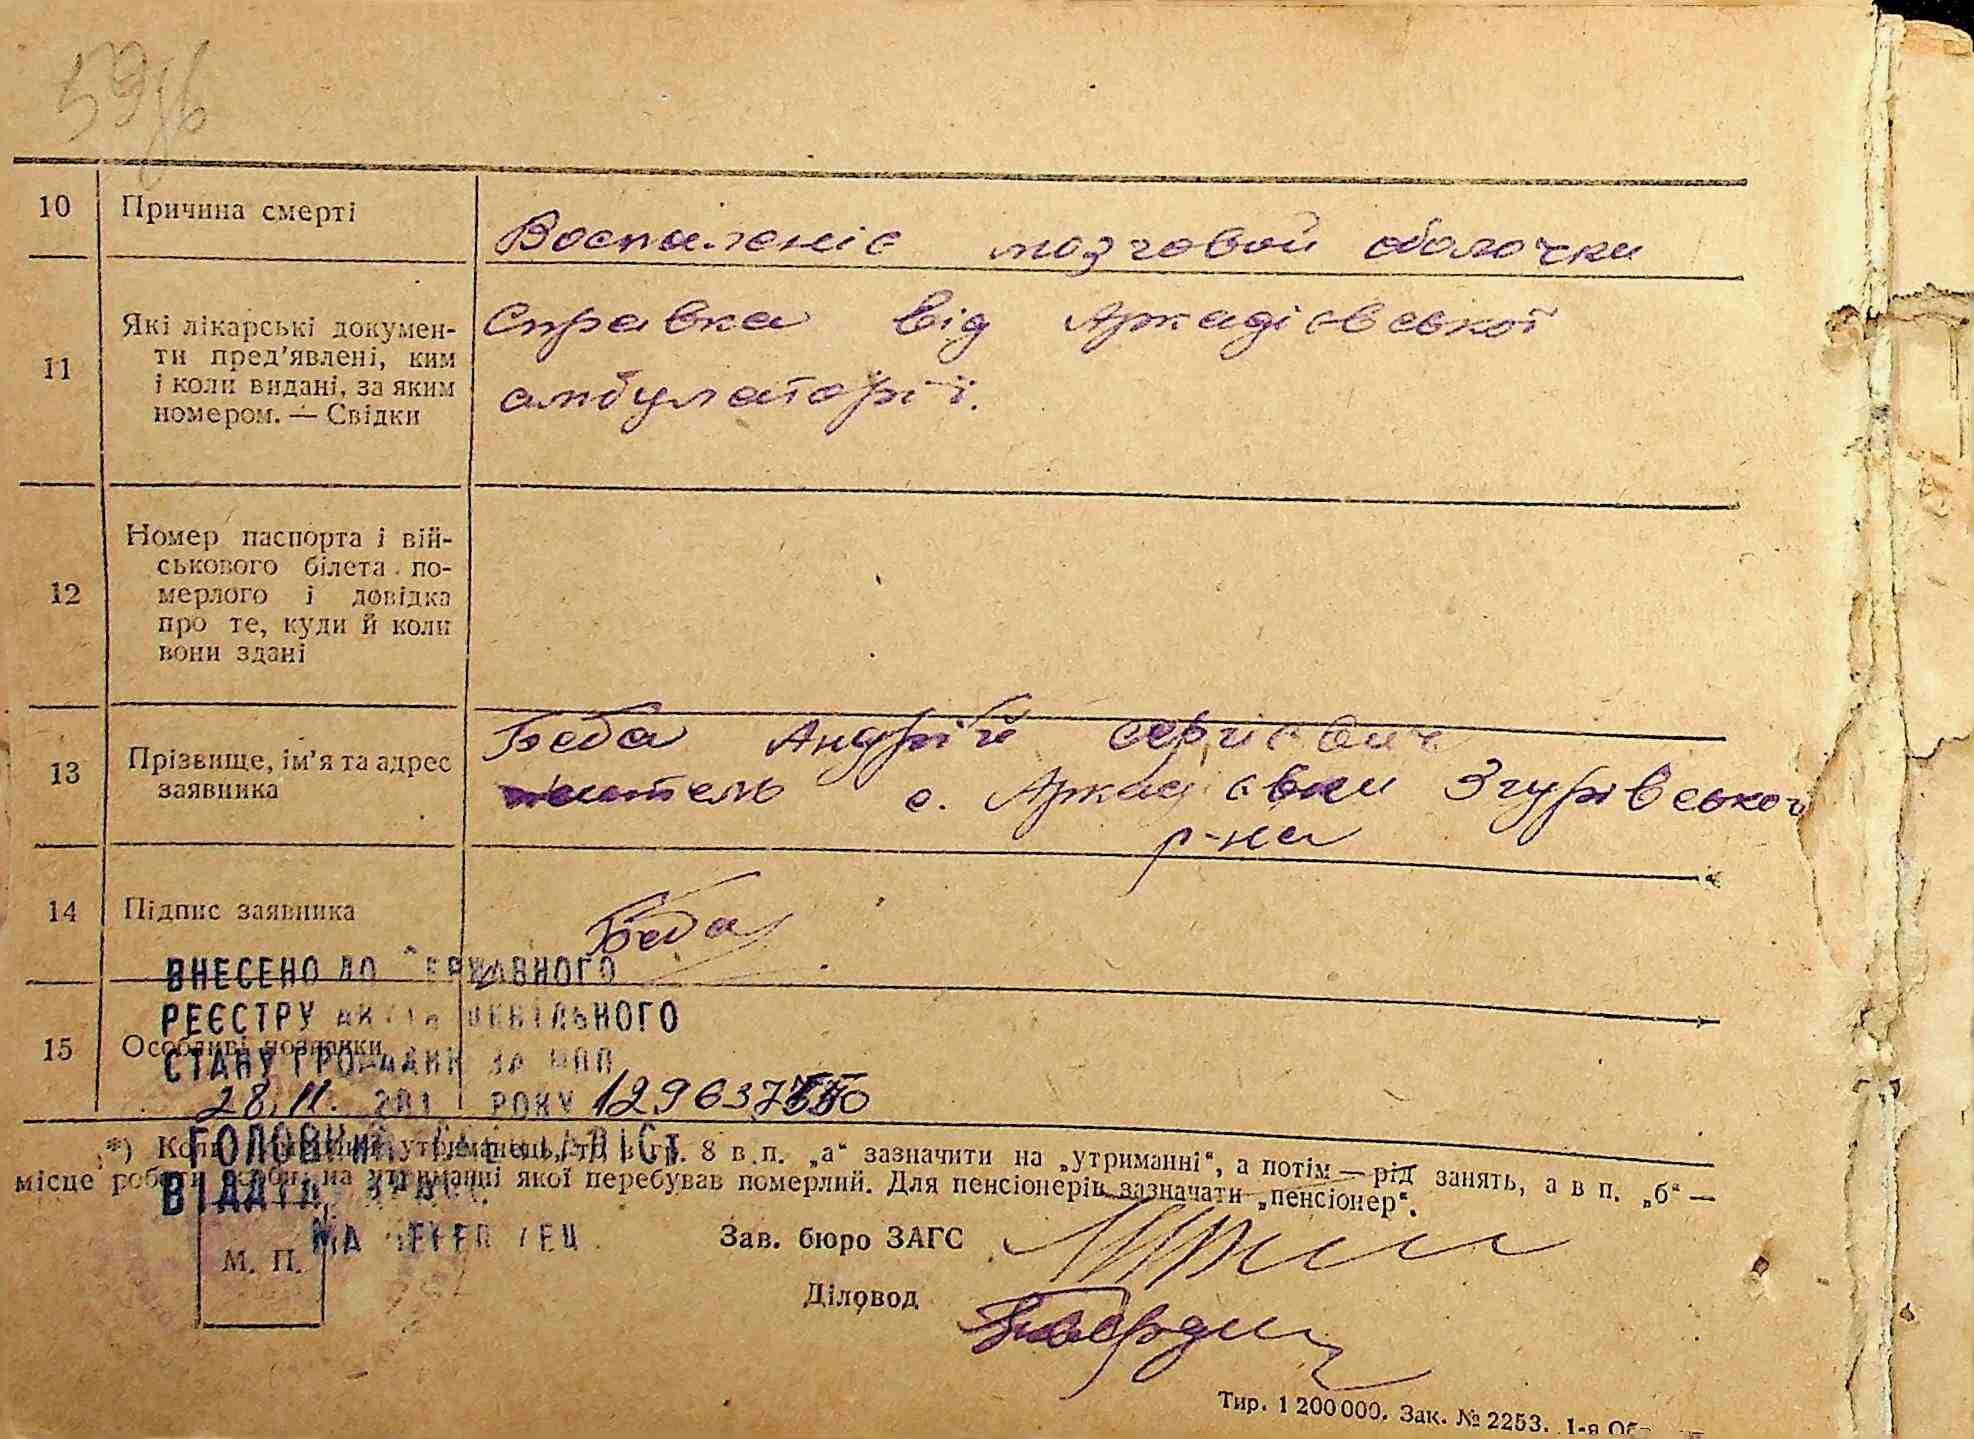 59
10 Причина смерті
Воспаленіє мозговой оболочки
11 Які лікарські докумен-
ти пред’явлені, ким
і коли видані, за яким
номером. — Свідки
Справка від Аркадієвської
амбулаторії.
12 Номер паспорта і вій-
ськового білета по-
мерлого і довідка
про те, куди й коли
вони здані
13 Прізвище, ім’я та адрес
заявника
Беба Андрій
житель с. Аркадієвки Згурівської
р-на
14 Підпис заявника
Беба
ВНЕСЕНО ДО ДЕРЖАВНОГО
РЕЄСТРУ АКТІВ ЦИВІЛЬНОГО
15 Особливі познаки
СТАНУ ГРОМАДЯН ЗА №
28.11. 201 РОКУ
ГОЛОВНИЙ СПЕЦІАЛІСТ
*) Коли утриманець, то в гр. 8 в п. „а“ зазначити на „утриманні“, а потім — рід занять, а в п. „б“ —
місце роботи особи, на утриманні якої перебував померлий. Для пенсіонерів зазначати „пенсіонер“.
ВІДДІЛУ
М. П.
Зав. бюро ЗАГС
Діловод
Тир. 1 200 000. Зак. № 2253. 1-я